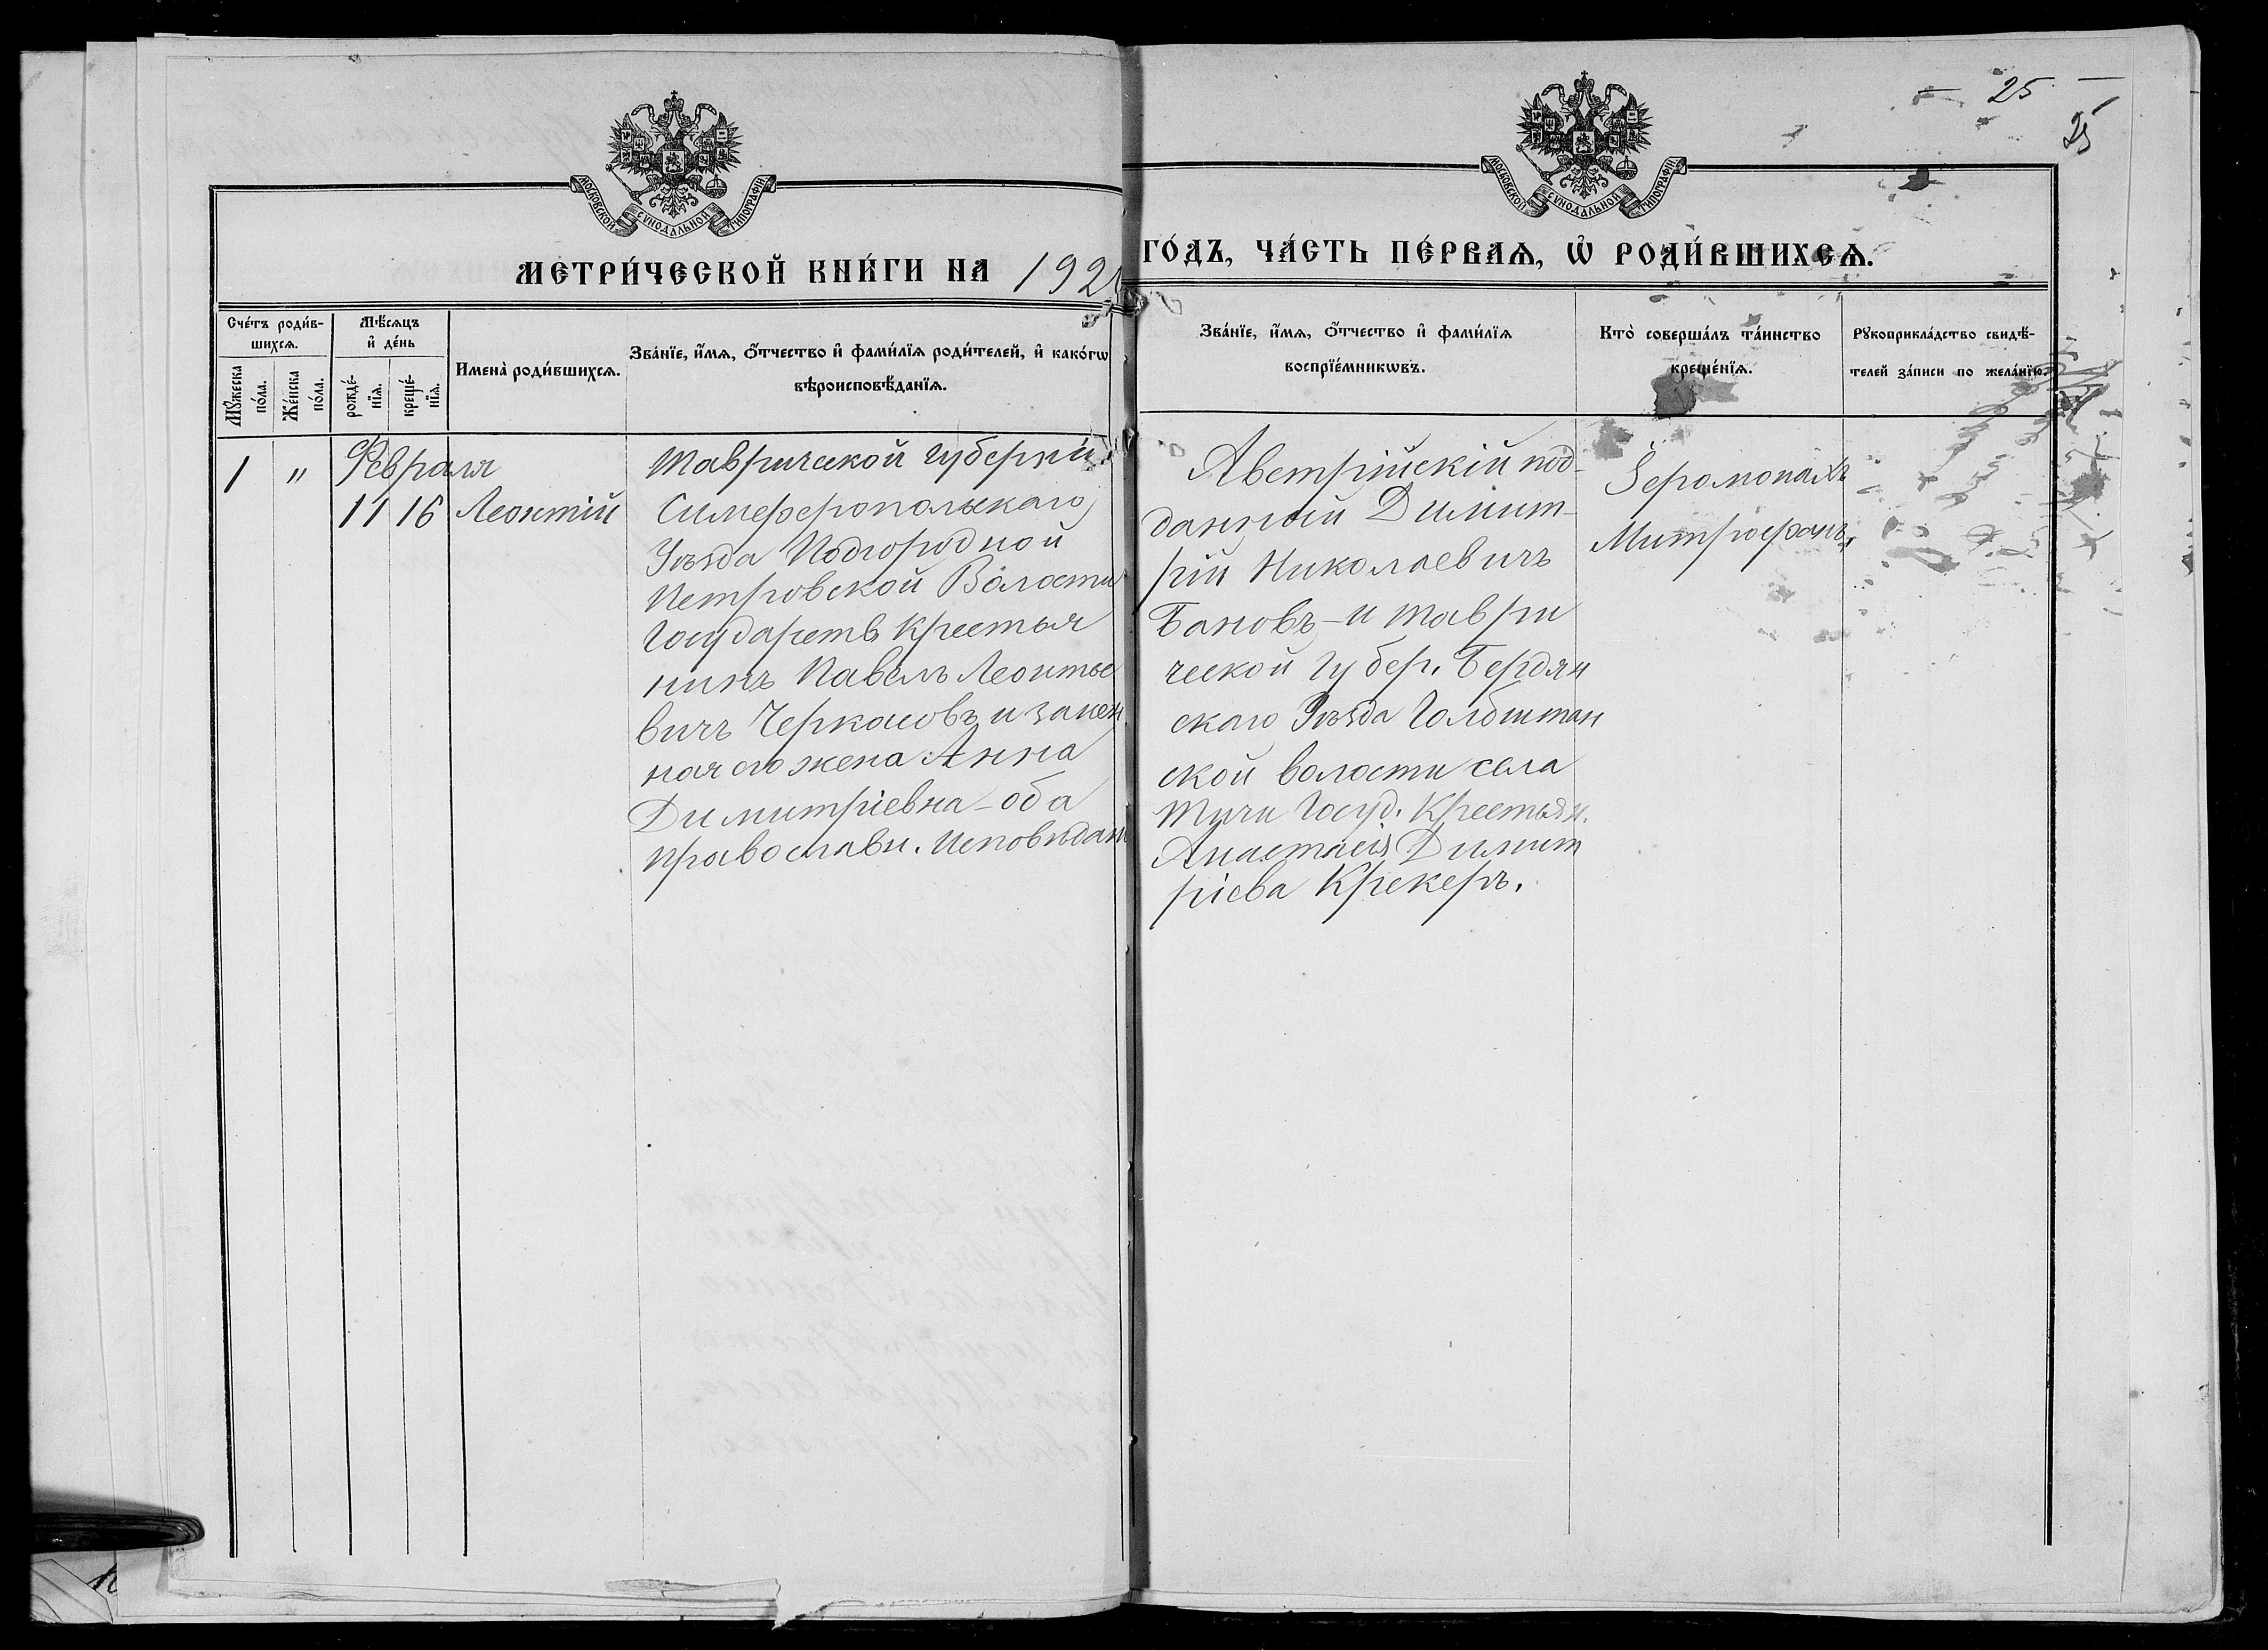 — 25 —
25
МОСКОВСКОЙ СѴНОДАЛЬНОЙ ТИПОГРАФІИ
МОСКОВСКОЙ СѴНОДАЛЬНОЙ ТИПОГРАФІИ
МЕТРИ́ЧЕСКОЙ КНИ́ГИ НА 192
ГО́ДЪ, ЧА́СТЬ ПЕ́РВАѦ, Ѽ РОДИ́ВШИХСѦ.
Сче́тъ роди́в-
шихсѧ.
Мꙋ́жеска
по́ла.
Же́нска
по́ла.
Мѣ́сѧцъ
и҆ де́нь
рожде́-
нїѧ.
креще́-
нїѧ.
Имена̀ роди́вшихсѧ.
Зва́нїе, и҆́мѧ, ѻ҆́тчество и҆ фами́лїѧ роди́телей, и҆ како́гѡ
вѣроисповѣ́данїѧ.
Зва́нїе, и҆́мѧ, ѻ҆́тчество и҆ фами́лїѧ
воспрїе́мникѡвъ.
Кто̀ соверша́лъ та́инство
креще́нїѧ.
Рꙋкоприкла́дство свидѣ́-
телей за́писи по жела́нїю.
1 " Февраля
11 16 Леонтій
Таврической Губерніи
Симферопольскаго
Уѣзда Подгородной
Петровской Волости
Государств. Крестья
нинъ Павелъ Леонтье
вичъ Черкасовъ и закон
ная его жена Анна
Димитріевна – оба
Православн. Исповѣдан
Австрійскій под-
данный Димит-
рій Николаевичъ
Бановъ – и Таври
ческой Губер. Бердян
скаго Уѣзда
ской волости села
Госуд. Крестьян.
Анастасія Димит
ріева Крекеръ.
Іеромонахъ
Митрофанъ,